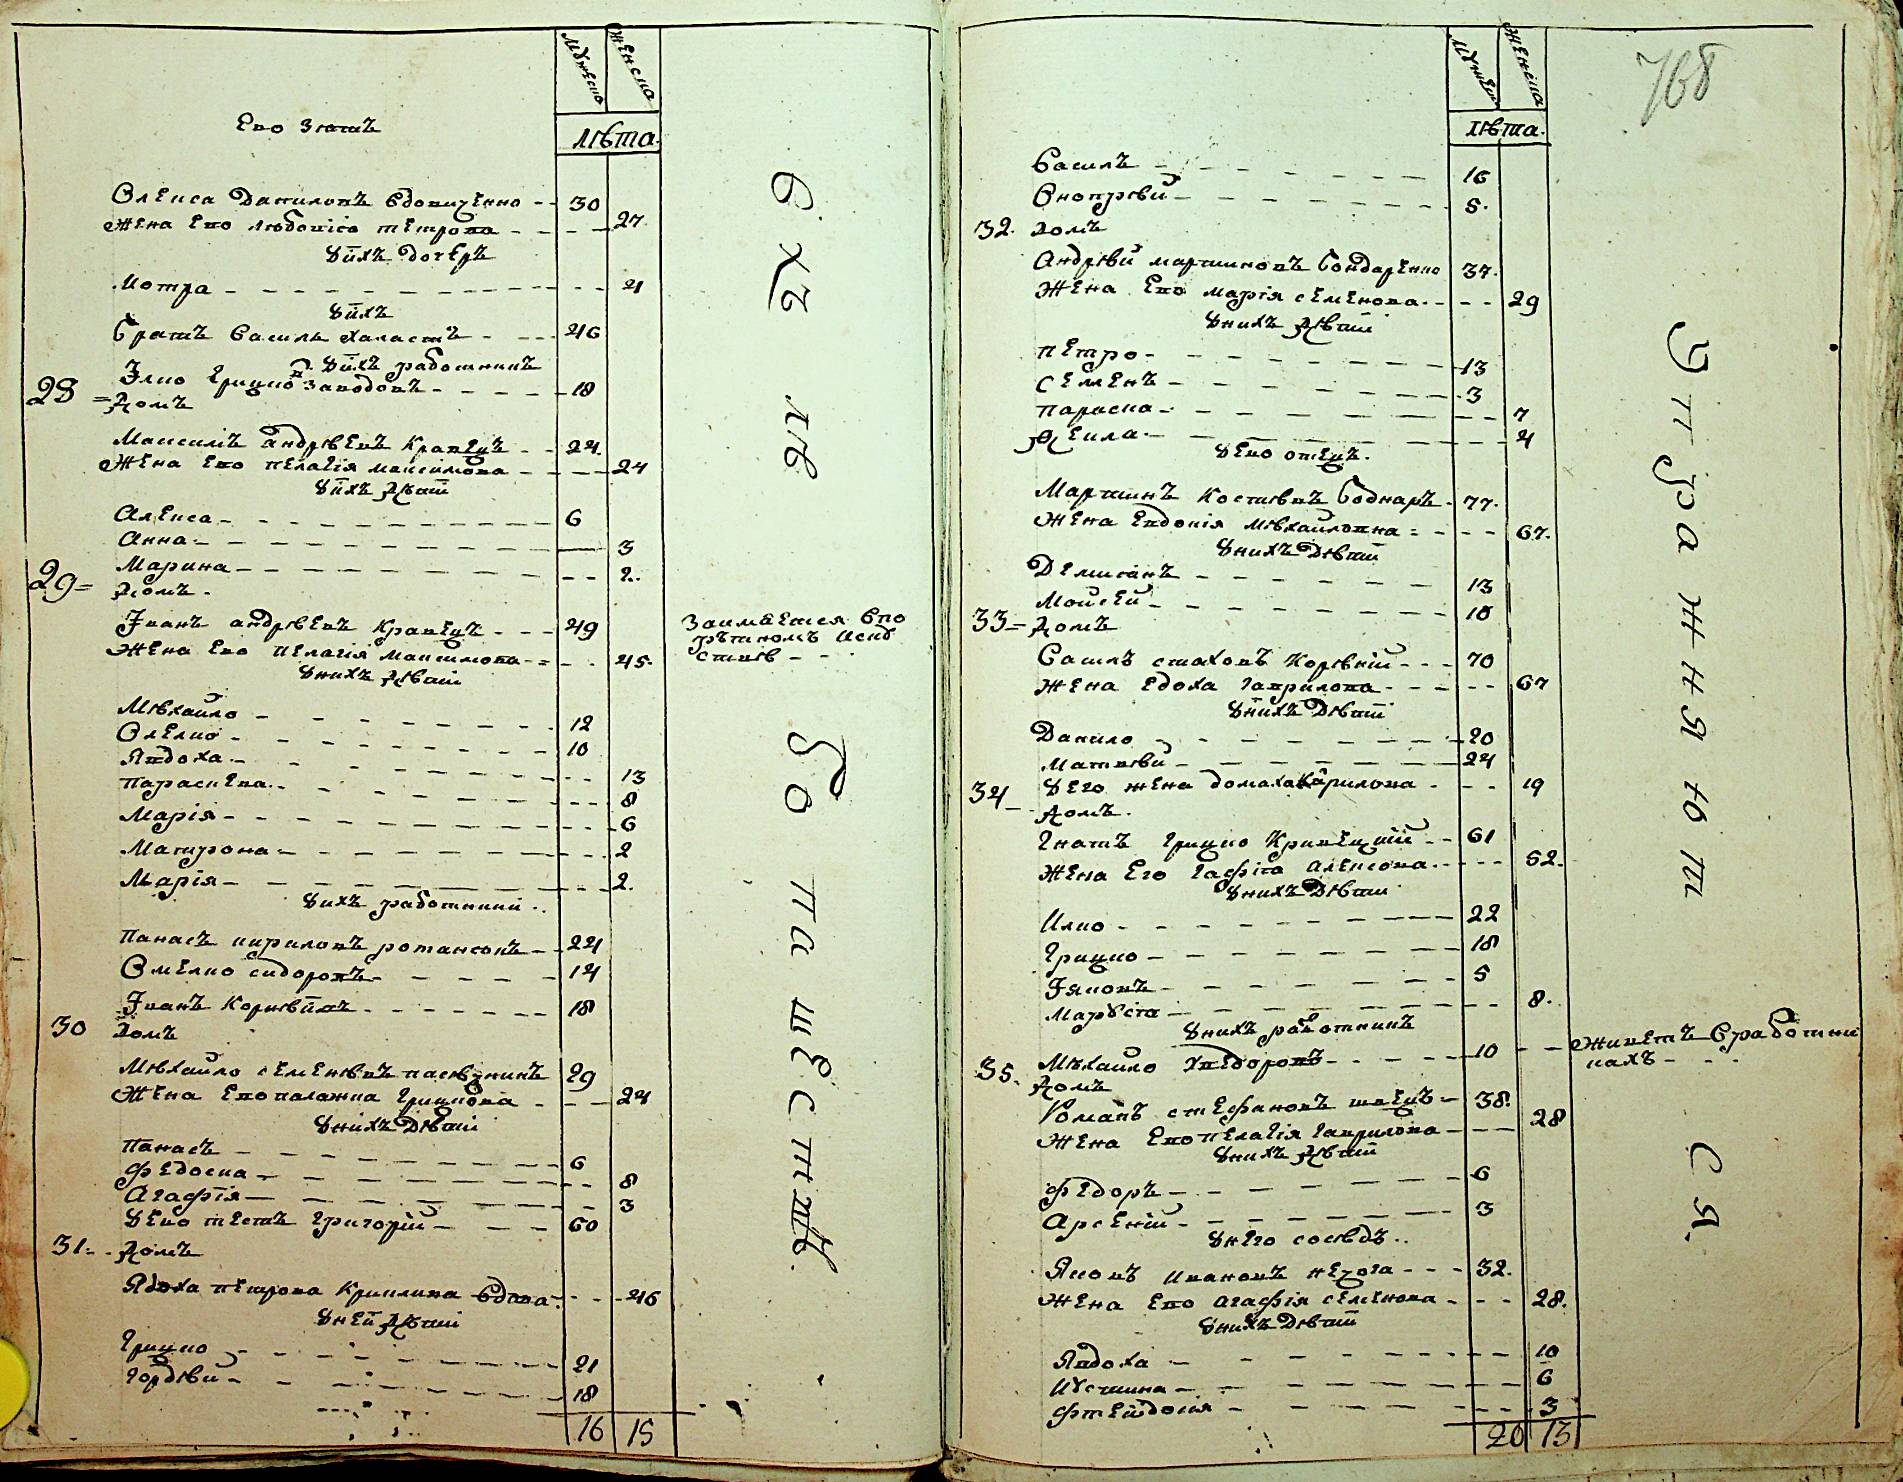 Мужеска
Женска
лѣта.
Его Зятъ
Олекса Даниловъ Вдовиченко 30
Жена Его Любовь Петрова 27
У ихъ дочеръ
Мотра 4
У ихъ
Братъ Василь Халастъ 46
У ихъ работникъ
Грицко Заводовъ 18
28 = Домъ
Максимъ андрѣевъ Кравецъ 24.
Жена Его Пелагія максимова 24
У ихъ дѣти
Алекса 6
Анна 3
Марина 2.
29 = Домъ.
Іванъ андрѣевъ Кравецъ 49
Жена Его Пелагія Максимова 45.
У нихъ дѣти
Мѣхайло 12
Олелко 10
Явдоха 13
Параскева 8
Марія 6
Матрона 2
Марія 2.
У ихъ работники
Панасъ кириловъ 24
Омелко сидоровъ 14
Іванъ Корнѣевъ 18
30 Домъ
Мѣхайло семенѣвъ пасѣчникъ 29
Жена Его палажка Грицкова 24
У нихъ Дѣти
Панасъ 6
Федоска 8
Агафія 3
У Его тестъ Григорій 60
31 = Домъ
Явдоха петрова Кривлина Вдова 46
У ней дѣти
Грицко 21
Гордѣй 18
16 15
ихъ
дл
Бо
па
щ
Заимается
Мужеска
Женска
768
лѣта.
Василъ 16
Онопрѣй 5.
32. Домъ
Андрѣй мартиновъ Бондаренко 37.
Жена Его марія семенова 29
У нихъ дѣти
Петро 13
Семенъ 3
Параска 7
Ѳекла 4
У Его отецъ.
Мартинъ Костѣвъ Боднаръ 77.
Жена Евдокія мѣхайловна 67.
У нихъ Дѣти
Демянъ 13
Мойсей 10
33 = Домъ
Василъ стаховъ Корѣній 70
Жена Едоха гаврилова 67
У нихъ Дѣти
Данило 20
Матвѣй 24
У его жена домаха Кирилова 19
34 Домъ.
Гнатъ Грицко Кривецкій 61
Жена Его Гафія Алексова 52.
У нихъ Дѣти
Илко 22
Грицко 18
Іяковъ 5
Маруся 8.
У нихъ работникъ
Мѣхайло Хведоровъ 10
Живетъ В работни
кахъ
35. Домъ
Романъ стефановъ швецъ 38.
Жена Его пелагія гаврилова 28
У нихъ дѣти
Федоръ 6
Арсеній 3
У него сосѣдъ
Яковъ Ивановъ 32.
Жена Его агафія семенова 28.
У нихъ Дѣти
Явдоха 10
Устина 6
Фтейдосія 3
20 13
Упражняютъ
ся.